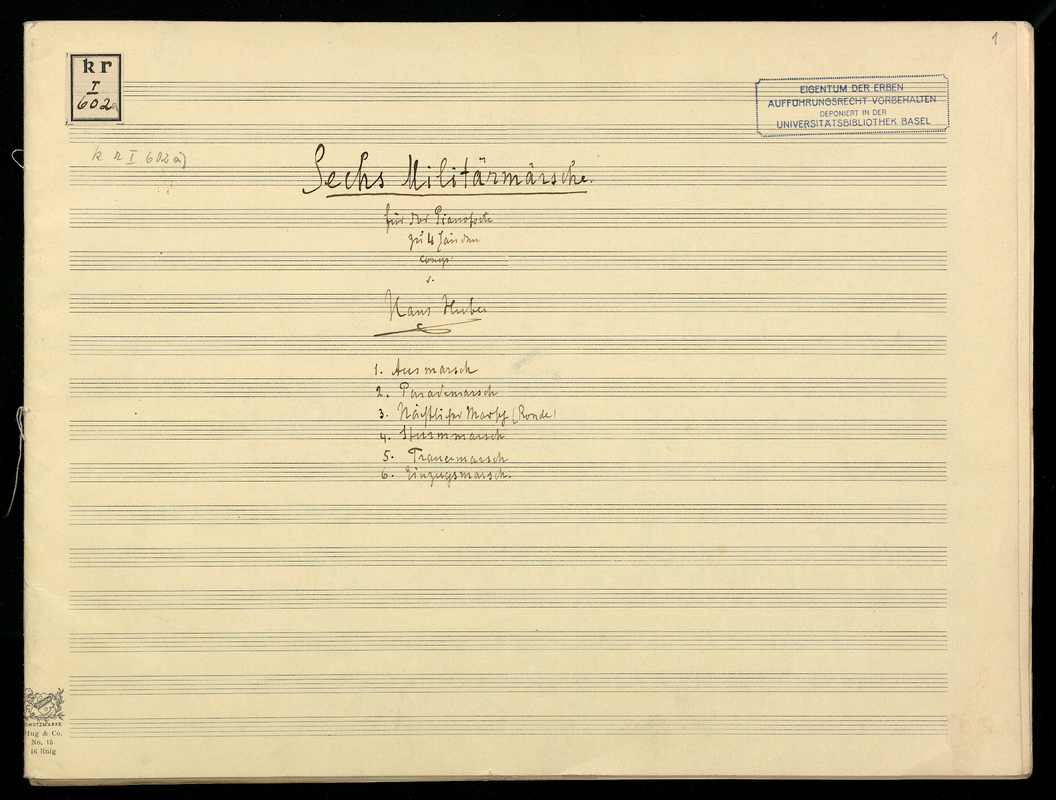 1
kr
I
602a
EIGENTUM DER ERBEN
AUFFÜHRUNGSRECHT VORBEHALTEN
DEPONIERT IN DER
UNIVERSITÄTSBIBLIOTHEK BASEL
k r I 602 a)
Sechs Militärmärsche.
für das Pianoforte
zu 4 Händen
comp.
v.
Hans Huber
1. Ausmarsch
2. Parademarsch
3. Nächtlicher Marsch (Ronde)
4. Sturmmarsch
5. Trauermarsch
6. Einzugsmarsch.
SCHUTZMARKE
Hug & Co.
No. 15
16 linig